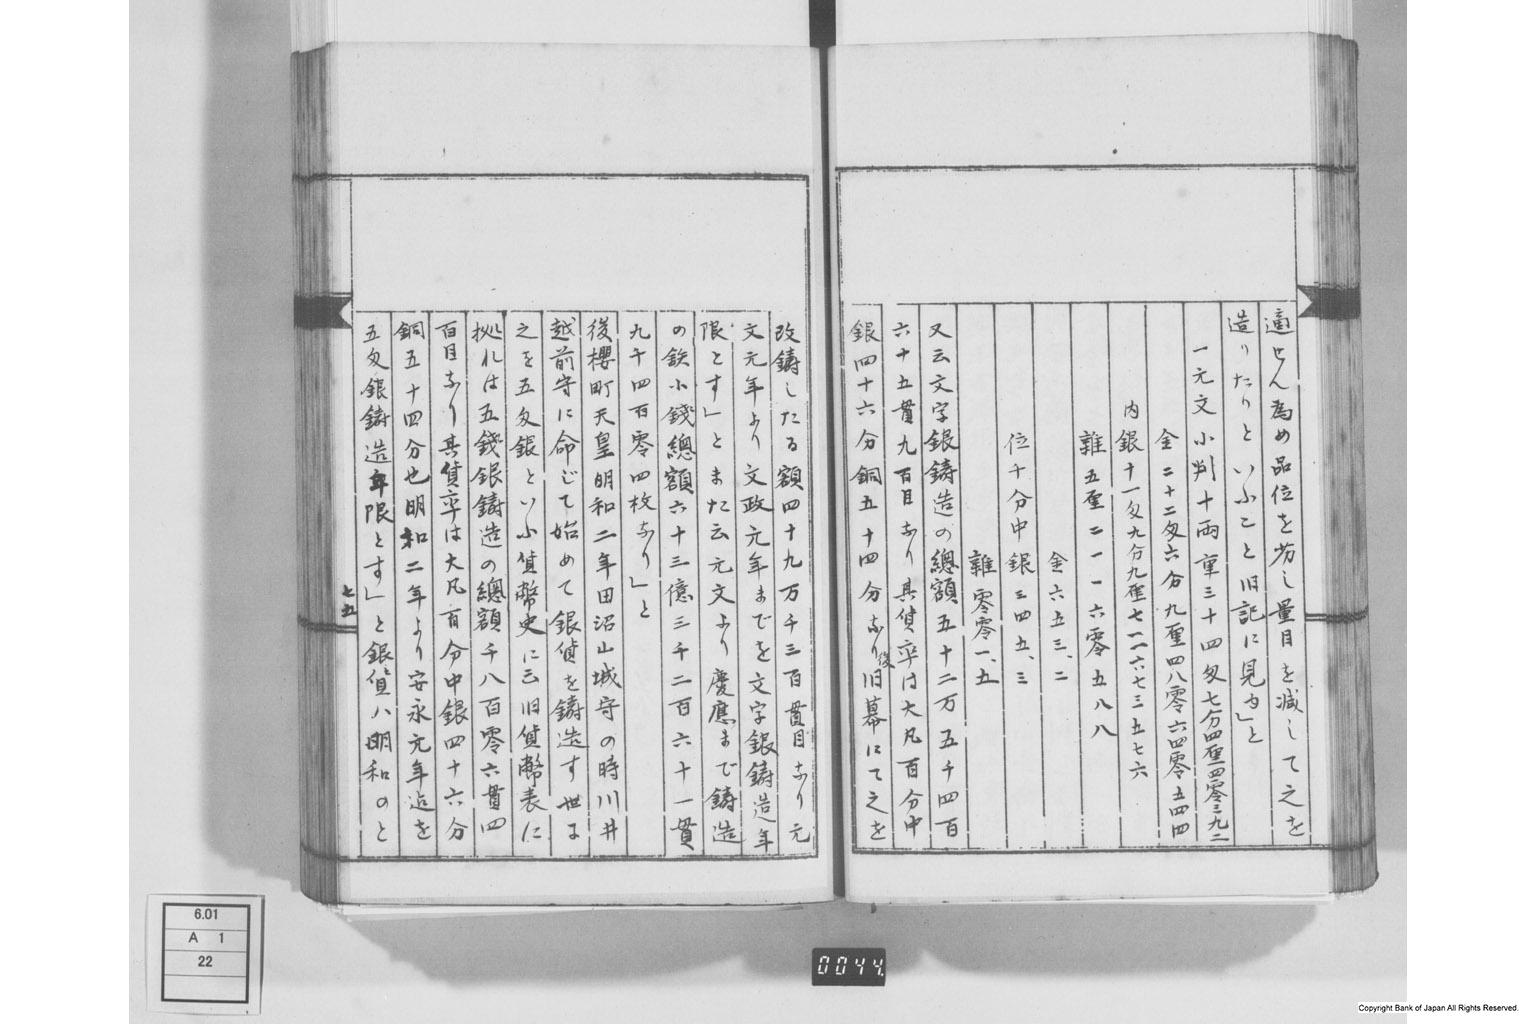 適せん為め品位を劣し量目を減して之を
造りたりといふこと旧記に見ゆ」と
一元文小判十両重三十四匁七分四厘四零三九二
金二十二匁六分九厘四八零六四零五四四
内
銀十一匁九分九厘七一一六七三五七六
雑五厘二一一六零五八八
金六五三、二
位千分中銀三四五、三
雑零零一、五
又云文字銀鋳造の總額五十二万五千四百
六十五貫九百目なり其貨率は大凡百分中
銀四十六分銅五十四分なり後旧幕にて之を
改鋳したる額四十九万千三百貫目なり元
文元年より文政元年までを文字銀鋳造年
限とす」とまた云元文より慶應まで鋳造
の鉄小錢總額六十三億三千二百六十一貫
九千四百零四枚なり」と
後櫻町天皇明和二年田沼山城守の時川井
越前守に命じて始めて銀貨を鋳造す世に
之を五匁銀といふ貨幣史に云旧貨幣表に
拠れは五錢銀鋳造の總額千八百零六貫四
百目なり其貨率は大凡百分中銀四十六分
銅五十四分也明和二年より安永元年迄を
五匁銀鋳造年限とす」と銀貨ハ明和のと
七五
6.01
A 1
22
0044
Copyright Bank of Japan All Rights Reserved.